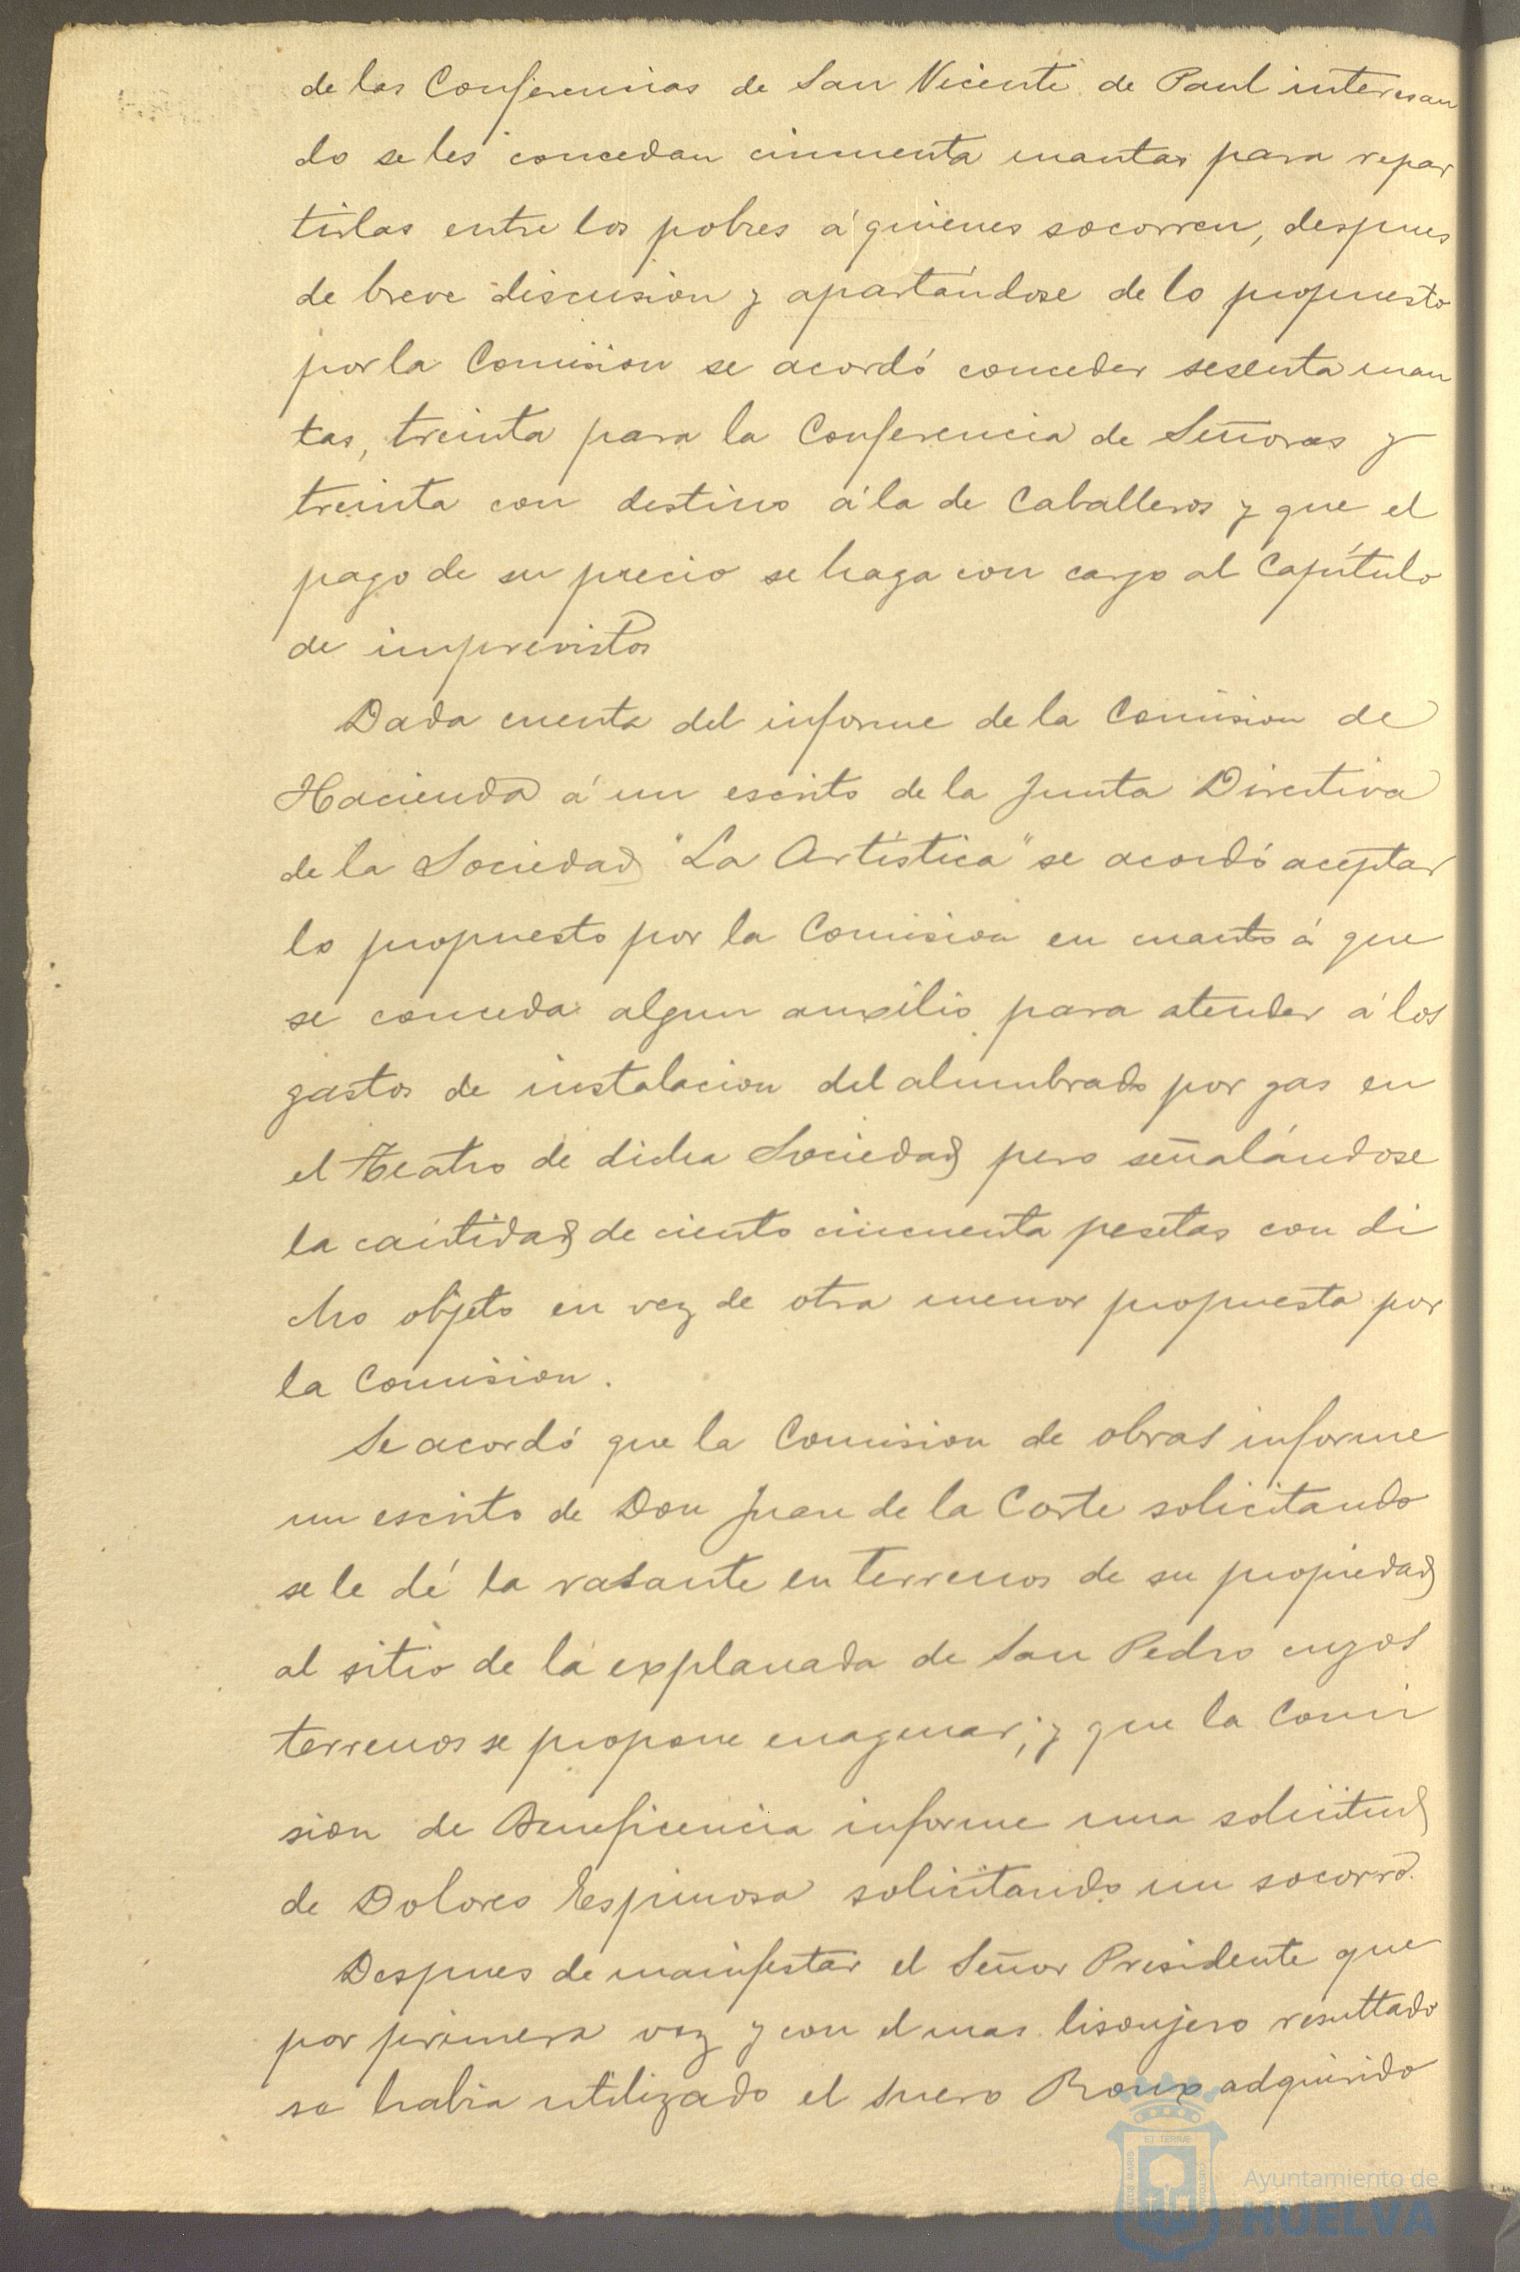 de las Conferencias de San Vicente de Paul interesan
do se les concedan cincuenta mantas para repar
tirlas entre los pobres á quienes socorren, despues
de breve discusion y apartándose de lo propuesto
por la Comision se acordó conceder sesenta man
tas, treinta para la Conferencia de Señoras y
treinta con destino á la de Caballeros y que el
pago de su precio se haga con cargo al Capítulo
de imprevistos
Dada cuenta del informe de la Comision de
Hacienda á un escrito de la Junta Directiva
de la Sociedad "La Artística" se acordó aceptar
lo propuesto por la Comision en cuanto á que
se conceda algun auxilio para atender á los
gastos de instalacion del alumbrado por gas en
el Teatro de dicha Sociedad pero señalándose
la cantidad de ciento cincuenta pesetas con di
cho objeto en vez de otra menor propuesta por
la Comision.
Se acordó que la Comision de obras informe
un escrito de Don Juan de la Corte solicitando
se le dé la rasante en terrenos de su propiedad
al sitio de la explanada de San Pedro cuyos
terrenos se propone enagenar; y que la Comi
sion de Beneficencia informe una solicitud
de Dolores Espinosa solicitando un socorro.
Despues de manifestar el Señor Presidente que
por primera vez y con el mas lisonjero resultado
se habia utilizado el suero Roux adquirido
Ayuntamiento de
HUELVA